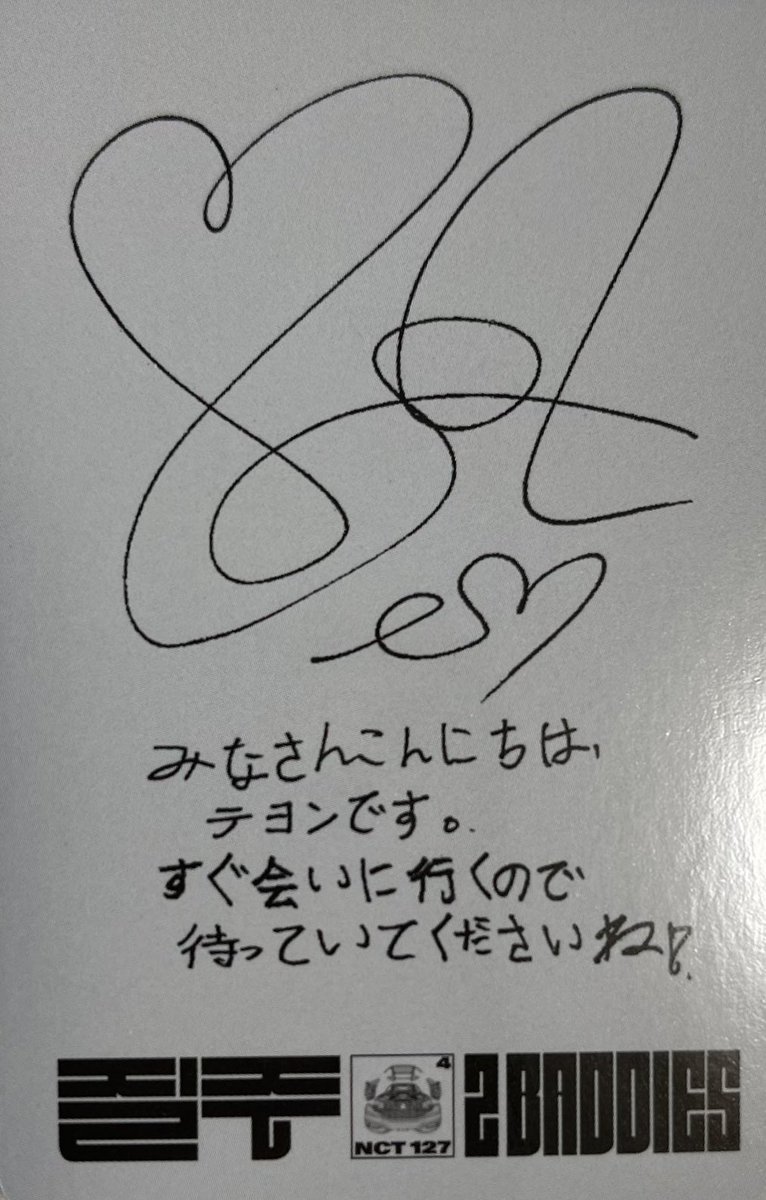 みなさんこんにちは、
テヨンです。
すぐ会いに行くので
待っていてくださいね!
질주 4 NCT 127 2 BADDIES